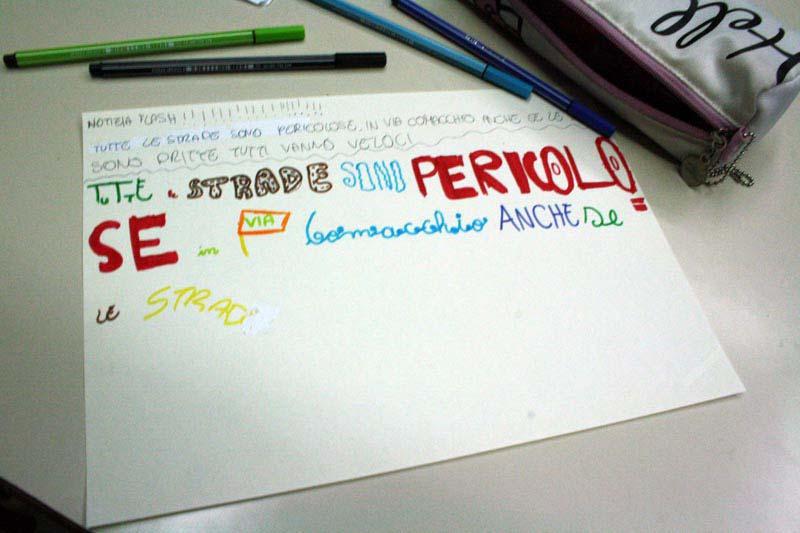 NOTIZIA FLASH !!!!!!!!!!!!!!!
TUTTE LE STRADE SONO PERICOLOSE. IN VIA COMACCHIO ANCHE SE LE
SONO DRITTE TUTTI VANNO VELOCI
TUTTE STRADE SONO PERICOLO=
SE in VIA Comacchio ANCHE Se
LE STRAD
Hell